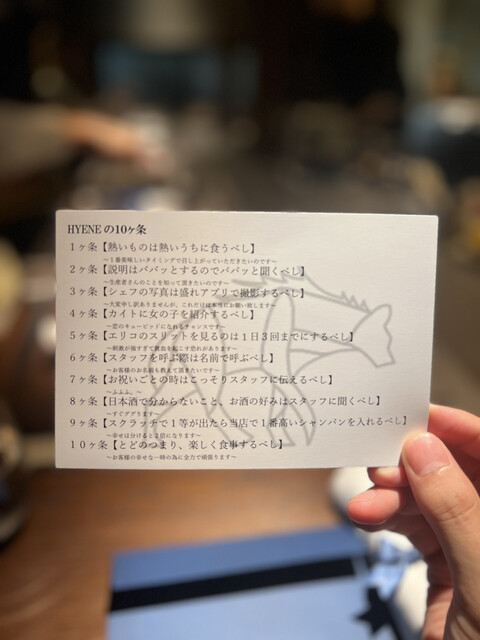 HYENEの10ヶ条
1ヶ条【熱いものは熱いうちに食うべし】
～1番美味しいタイミングで召し上がっていただきたいのです～
2ヶ条【説明はババッとするのでパパッと聞くべし】
～生産者さんのことを知って頂きたいのです～
3ヶ条【シェフの写真は盛れアプリで撮影するべし】
～大変申し訳ありませんが、これだけは本当にお願い致します～
4ヶ条【カイトに女の子を紹介するべし】
～恋のキューピッドになれるチャンスです～
5ヶ条【エリコのスリットを見るのは1日3回までにするべし】
～刺激が強すぎて鼻血を起こす恐れがあります～
6ヶ条【スタッフを呼ぶ際は名前で呼ぶべし】
～お客様のお名前も教えて頂きたいです～
7ヶ条【お祝いごとの時はこっそりスタッフに伝えるべし】
～ふふふ、～
8ヶ条【日本酒で分からないこと、お酒の好みはスタッフに聞くべし】
～すぐググります～
9ヶ条【スクラッチで1等が出たら当店で1番高いシャンパンを入れるべし】
～幸せは分けると2倍になります～
10ヶ条【とどのつまり、楽しく食事するべし】
～お客様の幸せな一時の為に全力で頑張ります～